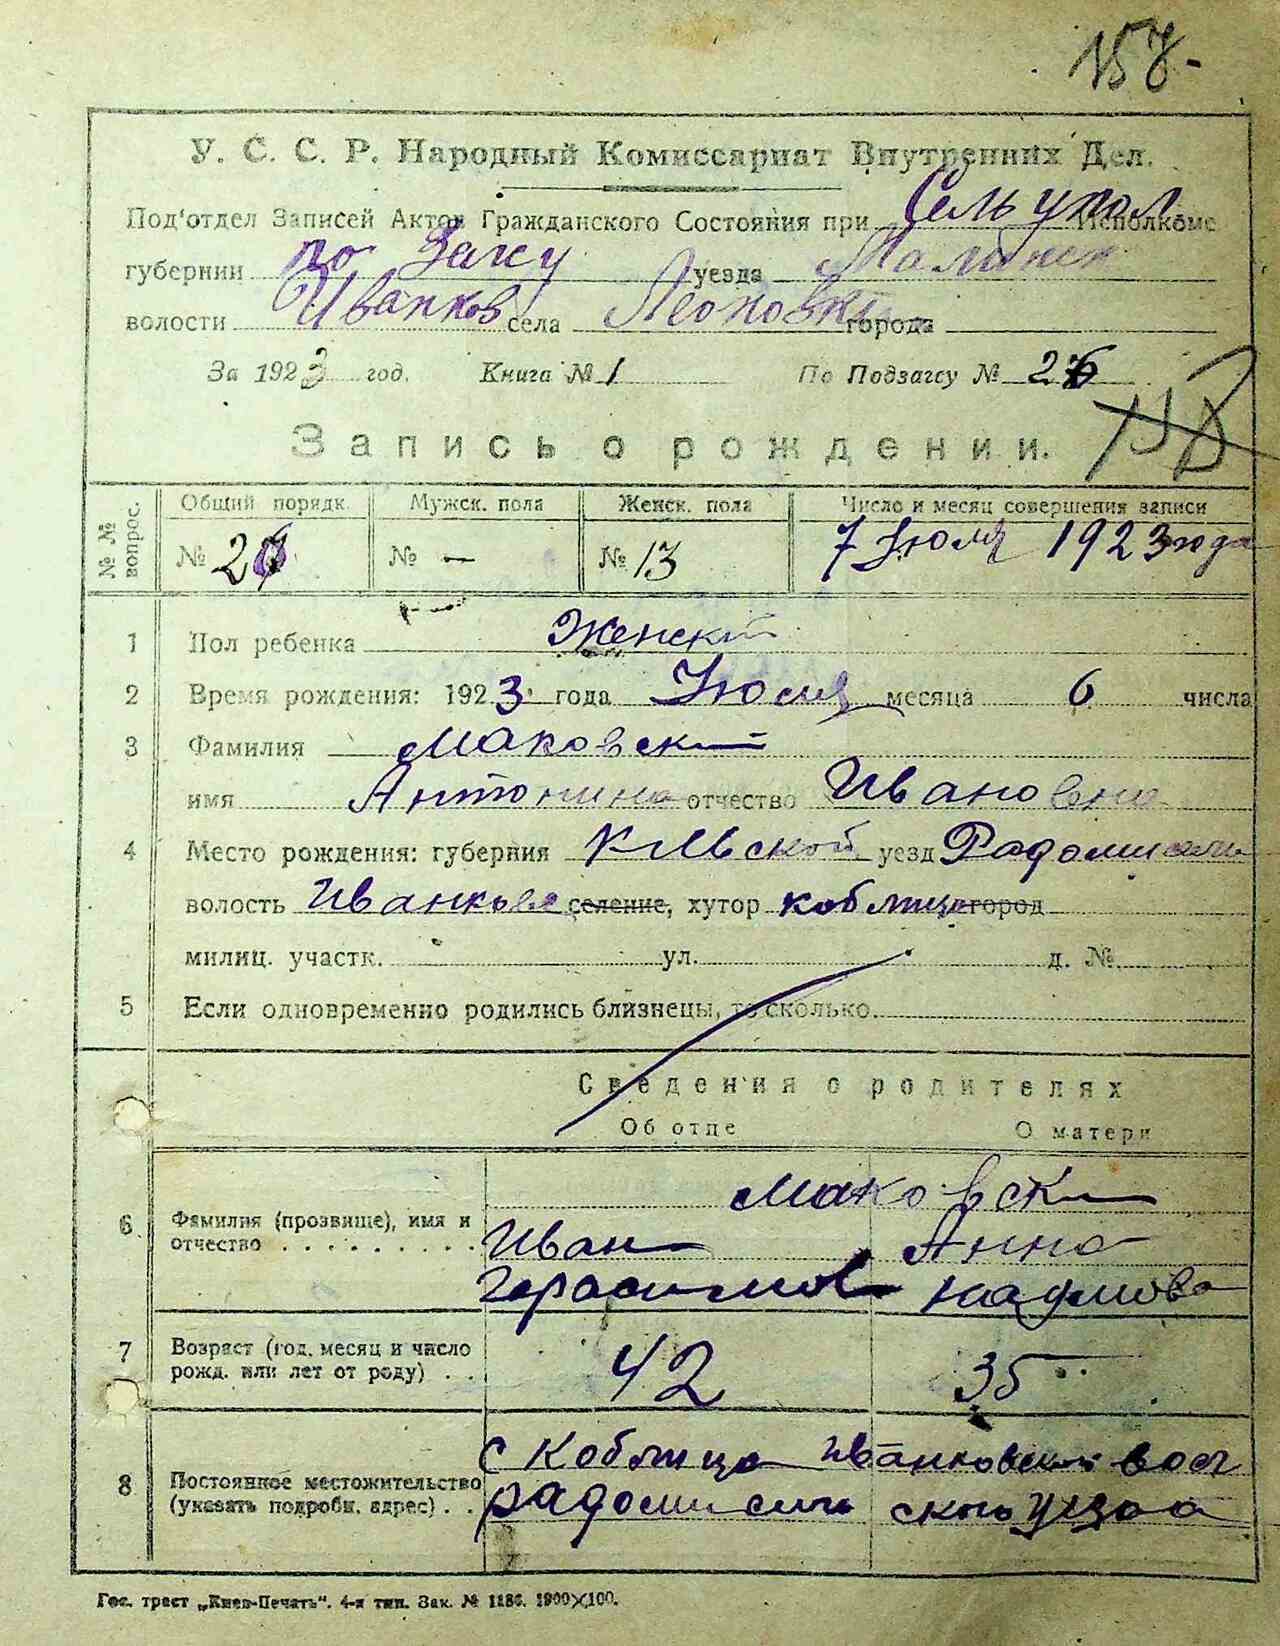 157-
У. С. С. Р. Народный Комиссариат Внутренних Дел.
Под'отдел Записей Актов Гражданского Состояния при Исполкоме
губернии по Загсу уезда
волости Иванков села Леоновки города
За 1923 год. Книга № 1 По Подзагсу № 26
Запись о рождении.
№№ вопрос. Общий порядк. Мужск. пола Женск. пола Число и месяц совершения записи
№ № — № 13 7 Июля 1923 года
1 Пол ребенка Женский
2 Время рождения: 1923 года Июля месяца 6 числа
3 Фамилия Маковский
имя Антонина отчество Ивановна
4 Место рождения: губерния уезд
волость селение, хутор Коблица город
милиц. участк. ул. д. №
5 Если одновременно родились близнецы, то сколько
Сведения о родителях
Об отце О матери
Маковски
6 Фамилия (прозвище), имя и Иван Анна
отчество . . . . . . . . . Герасимов
7 Возраст (год. месяц и число 42 35
рожд. или лет от роду) . .
8 Постоянное местожительство с Коблица Иванковской вол
(указать подробн. адрес) . . уезда
Гос. трест „Киев-Печать". 4-я тип. Зак. № 1186. 1900×100.